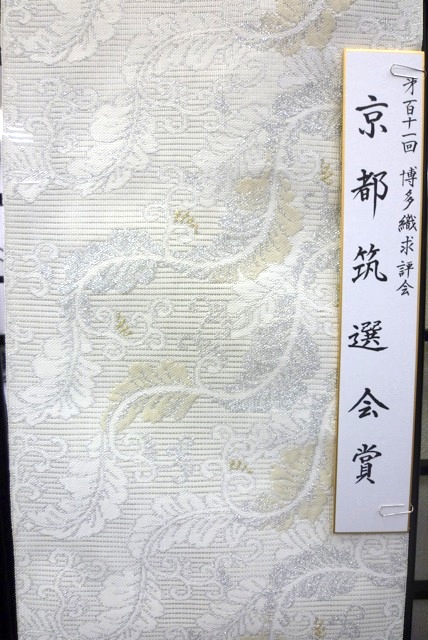 才百十一回 博多織求評会
京都筑選会賞